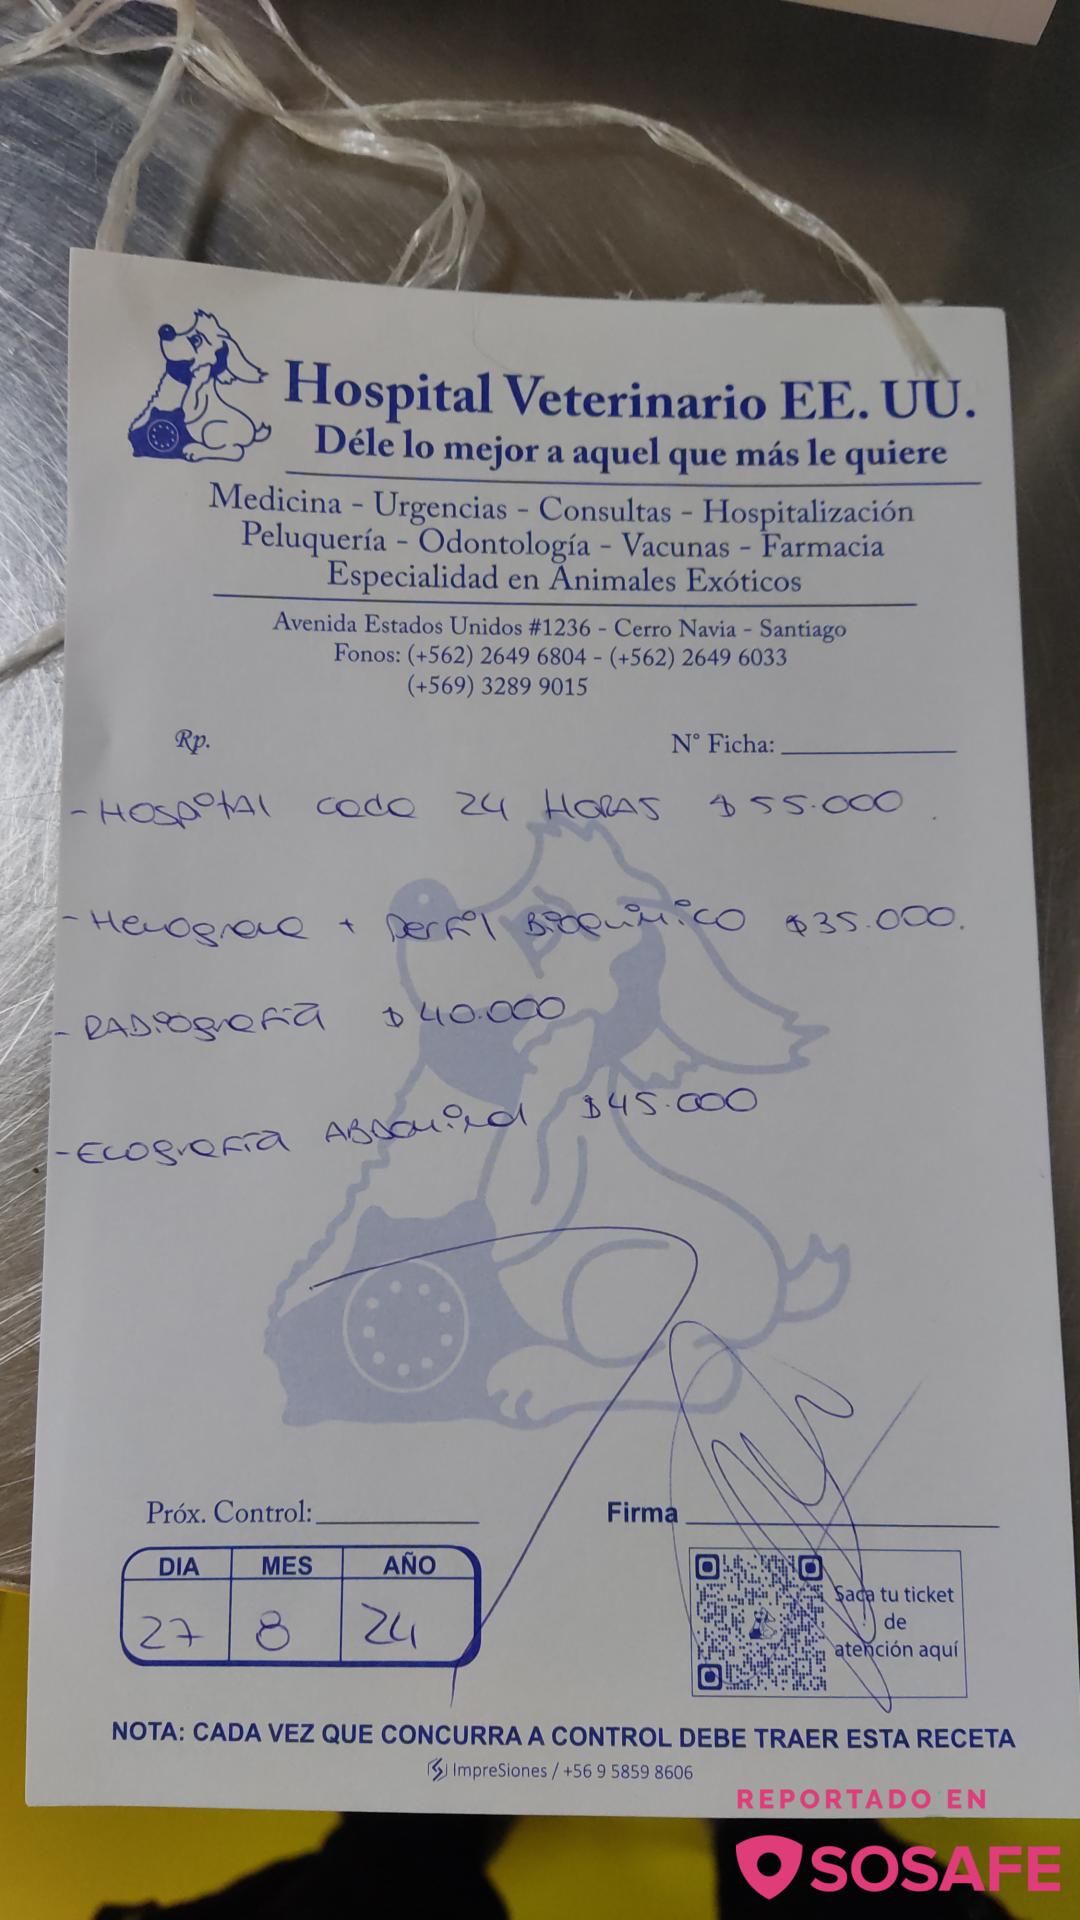 Hospital Veterinario EE. UU.
Déle lo mejor a aquel que más le quiere
Medicina - Urgencias - Consultas - Hospitalización
Peluquería - Odontología - Vacunas - Farmacia
Especialidad en Animales Exóticos
Avenida Estados Unidos #1236 - Cerro Navia - Santiago
Fonos: (+562) 2649 6804 - (+562) 2649 6033
(+569) 3289 9015
Rp. N° Ficha:
- HOSPITAL cada 24 HORAS $55.000
- Hemograma + Perfil Bioquimico $35.000.
- RADiografía $40.000
- Ecografía ABDominal $45.000
Próx. Control: Firma
DIA MES AÑO
27 8 24
Saca tu ticket
de
atención aquí
NOTA: CADA VEZ QUE CONCURRA A CONTROL DEBE TRAER ESTA RECETA
ImpreSiones / +56 9 5859 8606
REPORTADO EN
SOSAFE